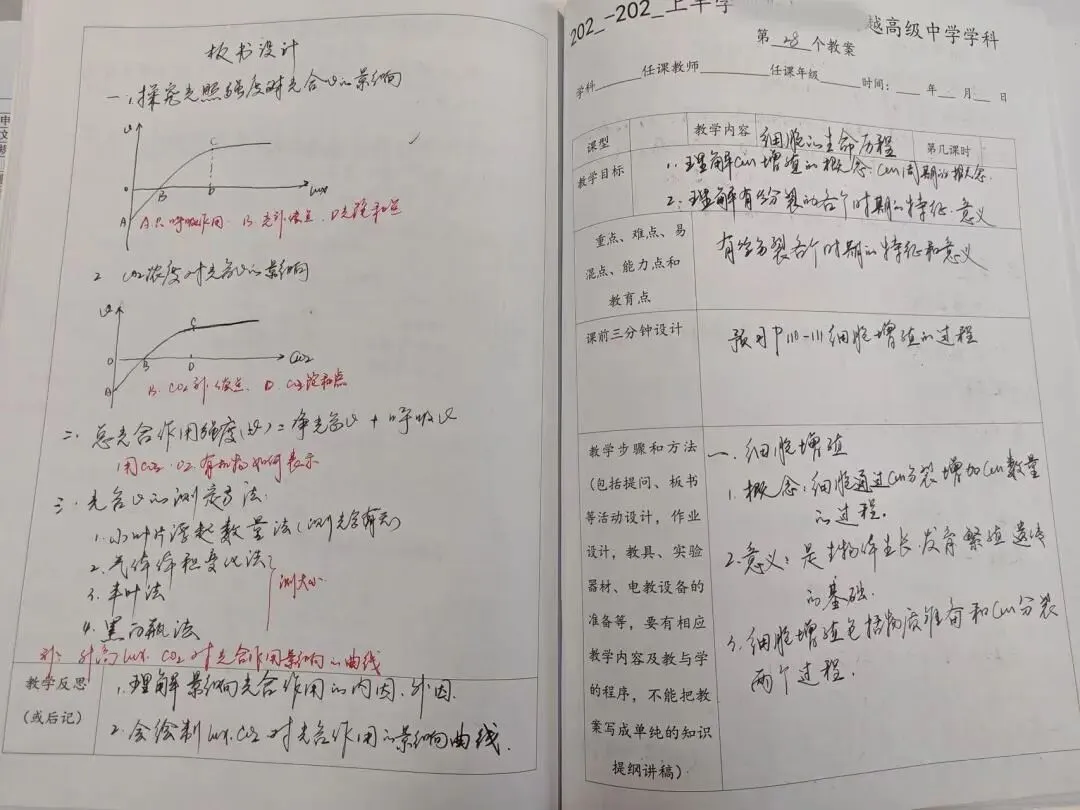 板书设计
一、1.探究光照强度对光合V的影响
V
C
0
B
D
lux
A
A:只呼吸作用. B:光补偿点. D光饱和点
2 CO2浓度对光合V的影响
V
C
0
B
D
CO2
A
B:CO2补偿点. D:CO2饱和点
二、总光合作用强度(V)=净光合V+呼吸V
用CO2、O2、有机物如何表示
三、光合V的测定方法.
1.小叶片浮起数量法(测光合有无)
2.气体体积变化法
3.半叶法
测大小
4.黑白瓶法
补:升高lux、CO2对光合作用影响的曲线
教学反思
(或后记)
1.理解影响光合作用的内因、外因.
2.会绘制lux、CO2对光合作用的影响曲线.
202_-202_上半学
越高级中学学科
第 28 个教案
学科 任课教师 任课年级 时间: 年 月 日
课型 教学内容 细胞的生命历程 第几课时
教学目标
1.理解cell增殖的概念、cell周期的概念.
2.理解有丝分裂的各个时期的特征、意义
重点、难点、易
混点、能力点和
教育点
有丝分裂各个时期的特征和意义
课前三分钟设计
预习P110-111细胞增殖的过程
教学步骤和方法
(包括提问、板书
等活动设计,作业
设计,教具、实验
器材、电教设备的
准备等,要有相应
教学内容及教与学
的程序,不能把教
案写成单纯的知识
提纲讲稿)
一、细胞增殖
1.概念:细胞通过cell分裂增加cell数量
的过程.
2.意义:是生物体生长、发育、繁殖、遗传
的基础.
3.细胞增殖包括物质准备和cell分裂
两个过程.